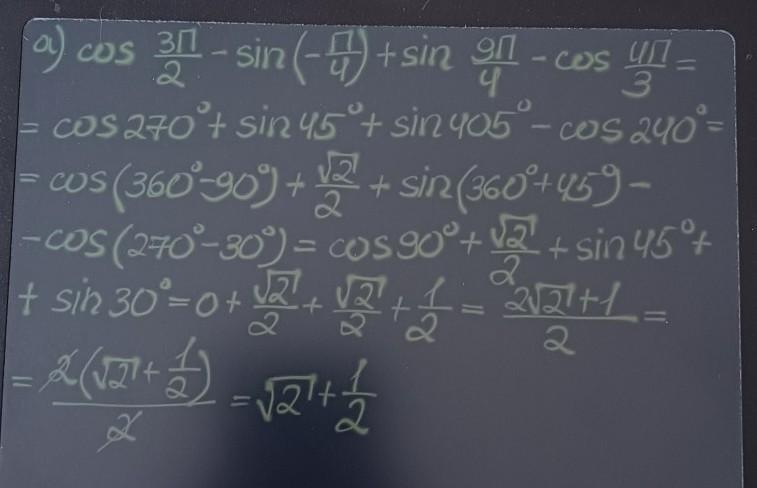 а) cos 3П/2 - sin(-П/4) + sin 9П/4 - cos 4П/3 =
= cos270° + sin45° + sin405° - cos240° =
= cos(360°-90°) + √2/2 + sin(360°+45°) -
- cos(270°-30°) = cos90° + √2/2 + sin45° +
+ sin30° = 0 + √2/2 + √2/2 + 1/2 = (2√2+1)/2 =
= 2(√2 + 1/2)/2 = √2 + 1/2